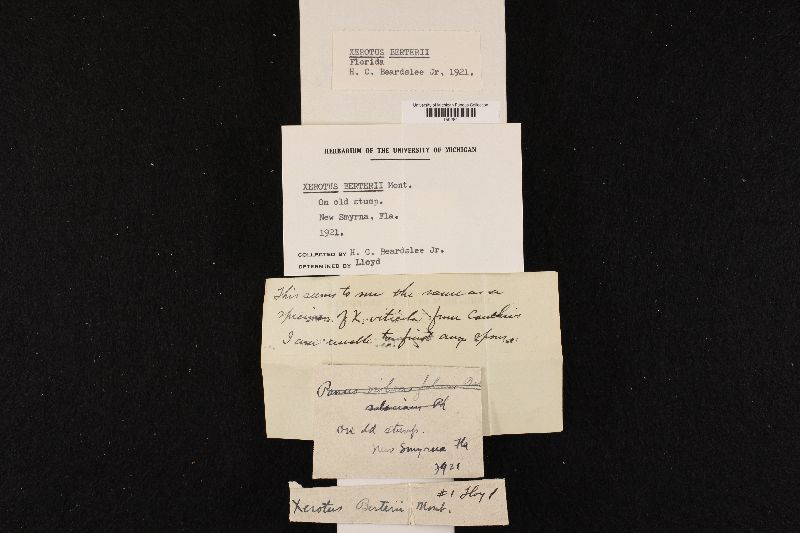 XEROTUS BERTERII
Florida
H. C. Beardslee Jr, 1921.
University of Michigan Fungus Collection
HERBARIUM OF THE UNIVERSITY OF MICHIGAN
XEROTUS BERTERII Mont.
On old stump.
New Smyrna, Fla.
1921.
COLLECTED BY H. C. Beardslee Jr.
DETERMINED BY Lloyd
This seems to me the same as a
specimen of X. viticola from
I am unable to find any spores.
Panus
On old stump.
New Smyrna Fla
1921
#1 Lloyd
Xerotus Berterii Mont.